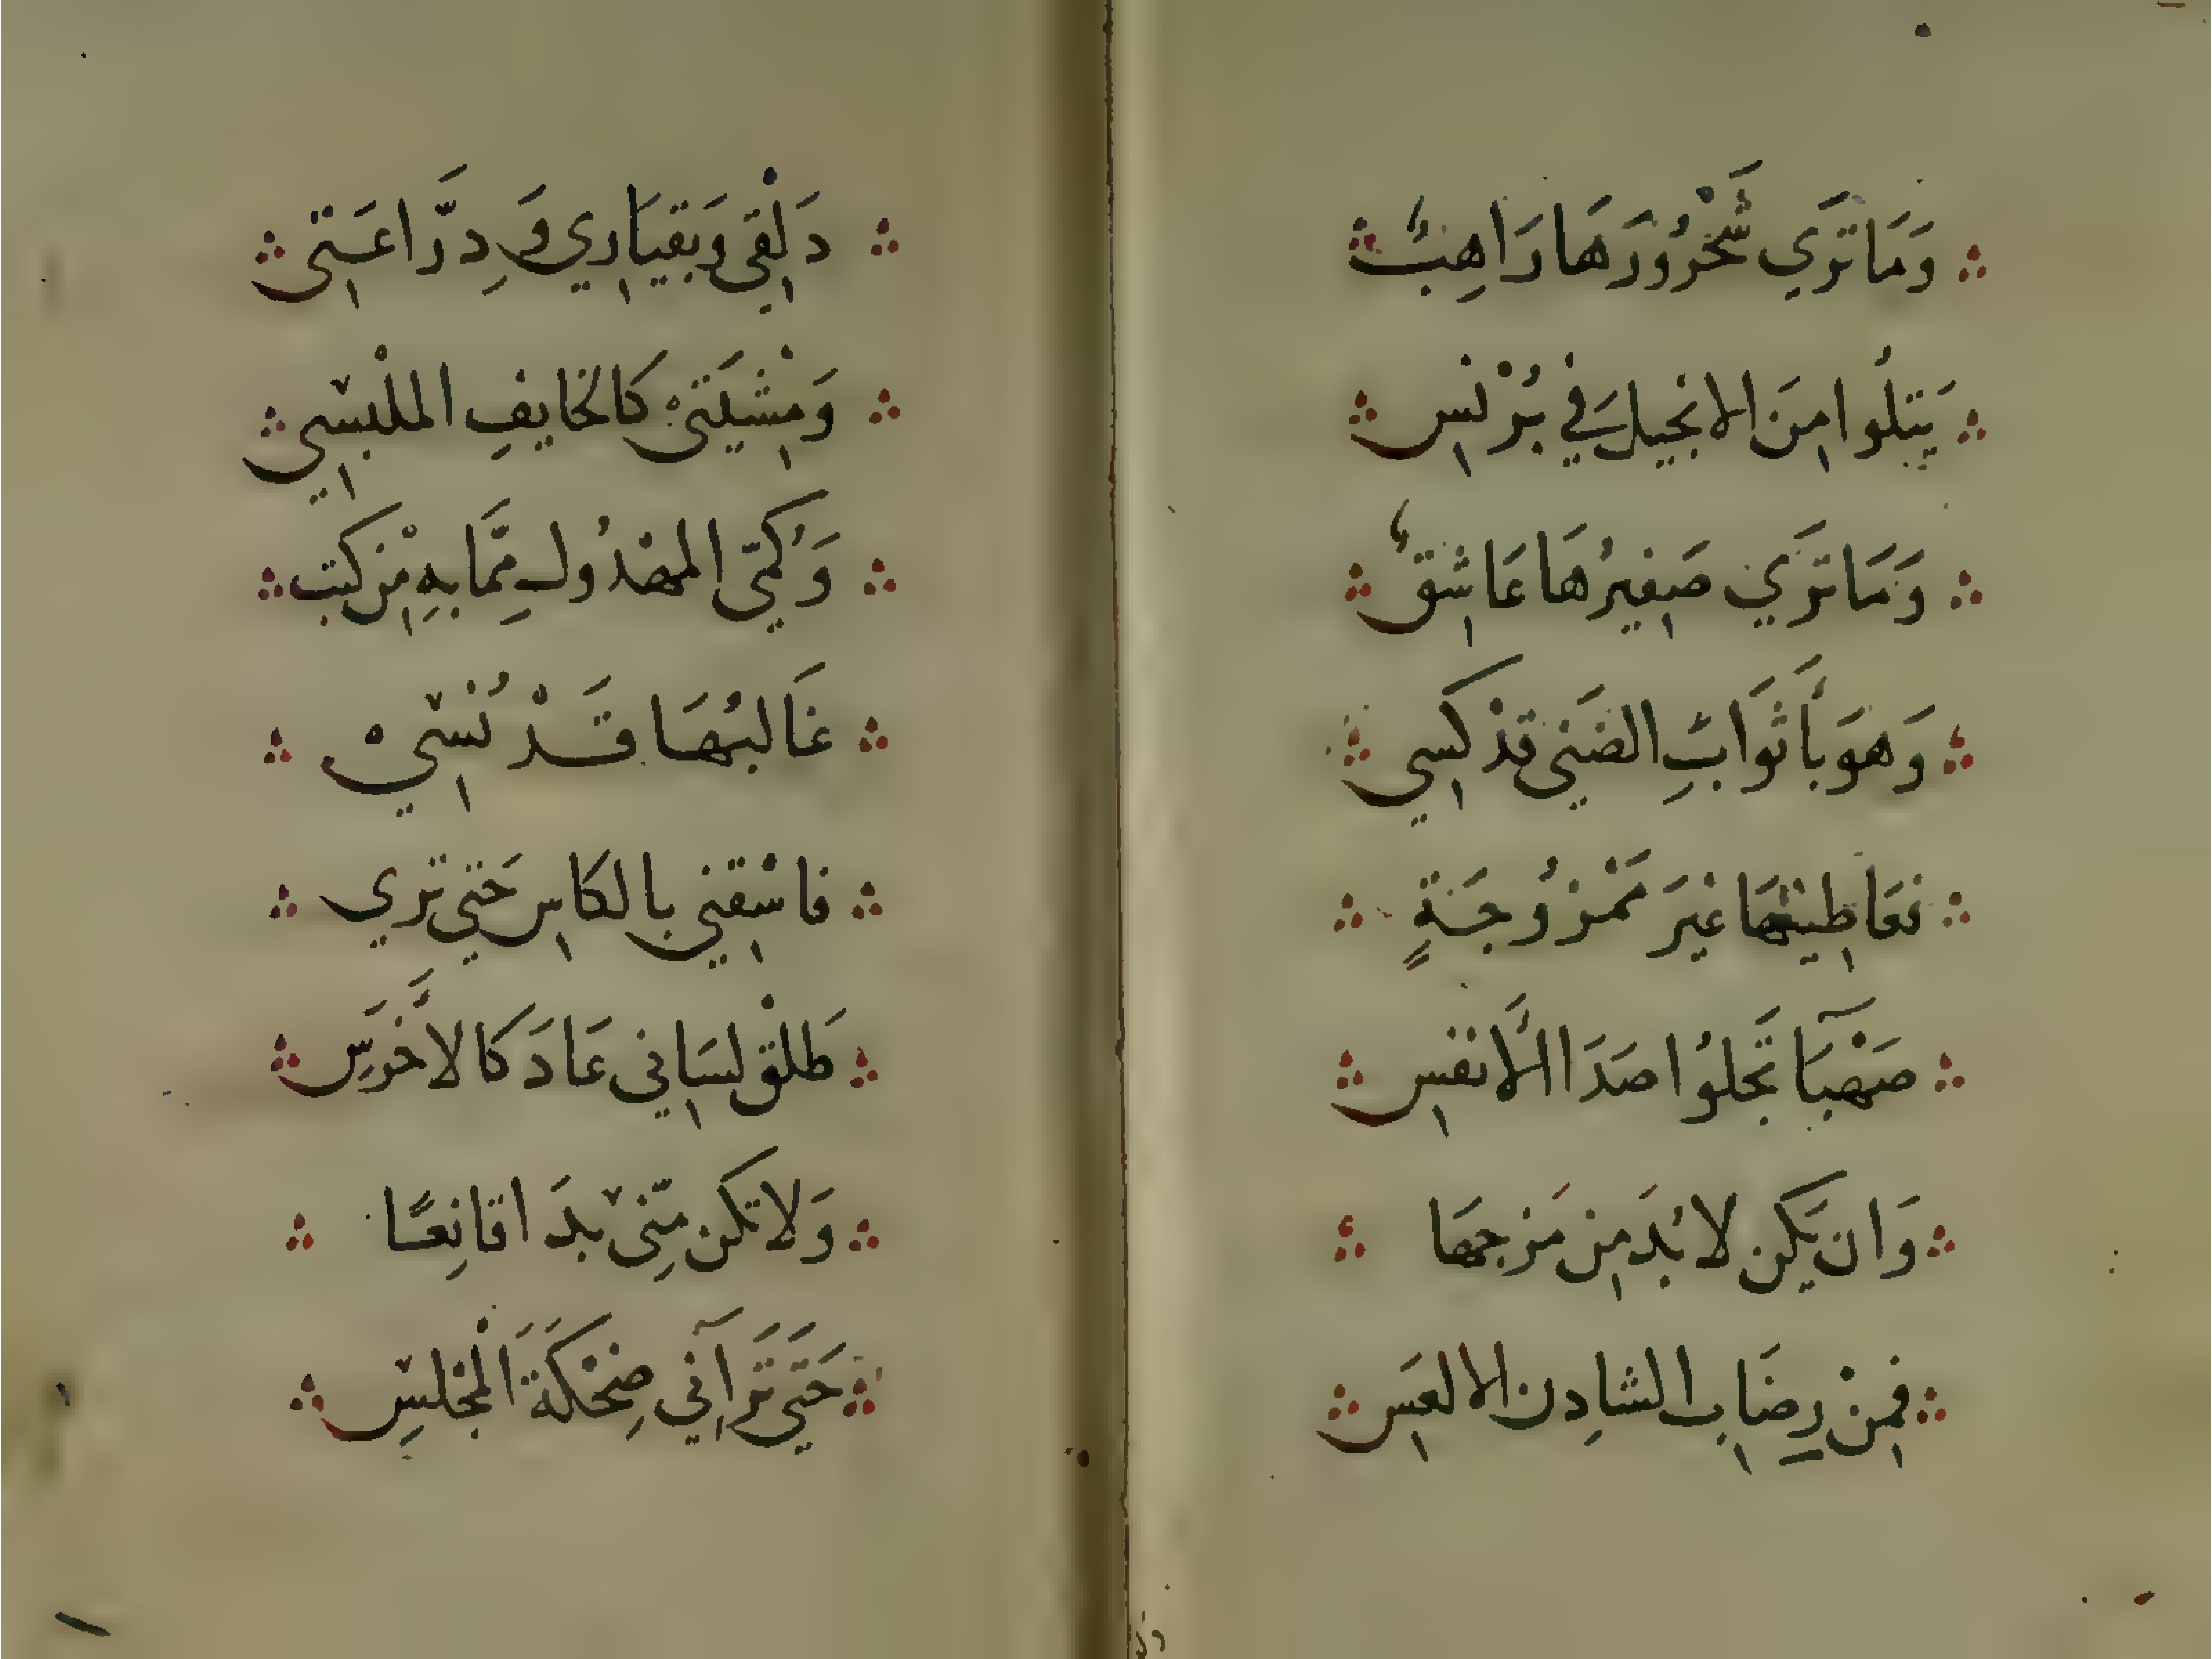 وَمَا تَرَي شَحْرُورَهَا رَاهِبٌ
يَتْلُوا مِنَ الانجيلَ فِي بُرْنْسِ
وَمَا تَرَي صَفِيرُهَا عَاشِقٌ
وَهوَ بأَثوَابِ الضَنِي قدْ كسِي
فعَاطِينْهَا غيرَ مَمْزُوجَةٍ
صَهْبَآ تَجلُوا صَدَا الأَنفسِ
وَان يَكن لا بُدَ مِن مَزجهَا
فمِنْ رِضَابِ الشادِن الالعَسِ
دَلْقِي وَبَقيَاري وَدِرَّاعَتي
وَمِشْيَتي كَالخايفِ الملْبسِي
وَكُمّي المهْدُول مِمَّا بهِ مِن كتب
غَالبُهَا قَدْ نُسِي
فاسْقِني بالكاسِ حَتي تري
طَلْق لسَاني عَادَ كالاخْرَسِ
وَلا تكن مِنّي بدَا قانِعًا
حَتَي تَرَآني ضِحْكَةَ المْجْلِسِ